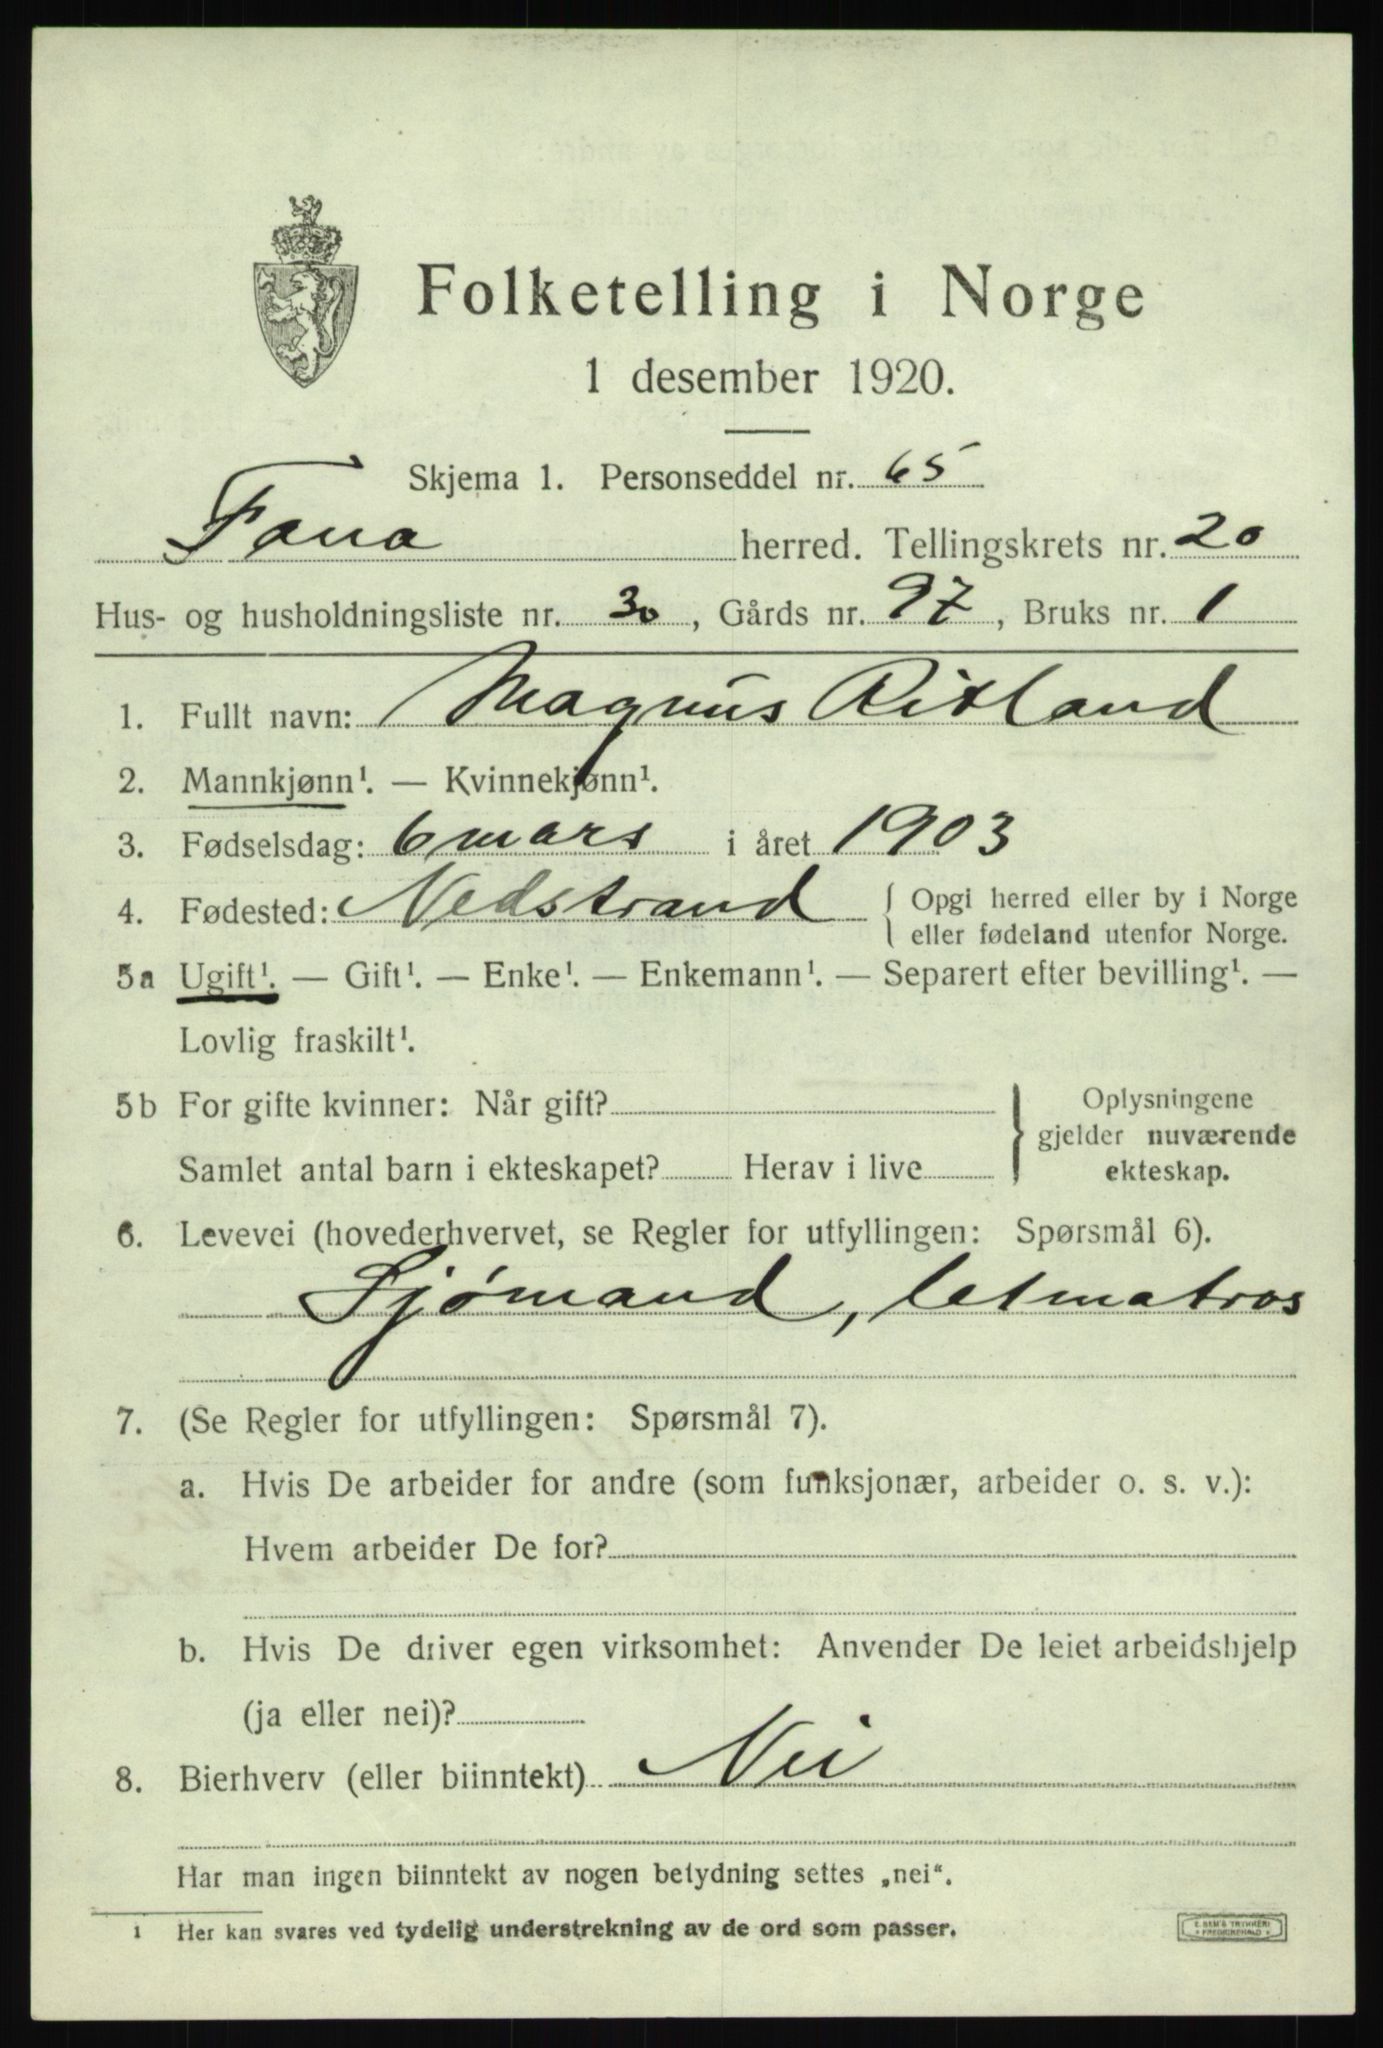 Folketelling i Norge
1 desember 1920.
Skjema 1. Personseddel nr. 65
Fana herred. Tellingskrets nr. 20
Hus- og husholdningsliste nr. 30, Gårds nr. 97, Bruks nr. 1
1. Fullt navn: Magnus Ritland
2. Mannkjønn¹. — Kvinnekjønn¹.
3. Fødselsdag: 6 mars i året 1903
4. Fødested: Nedstrand { Opgi herred eller by i Norge
eller fødeland utenfor Norge.
5a Ugift¹. — Gift¹. — Enke¹. — Enkemann¹. — Separert efter bevilling¹. —
Lovlig fraskilt¹.
5b For gifte kvinner: Når gift?
Samlet antal barn i ekteskapet? Herav i live
} Oplysningene
gjelder nuværende
ekteskap.
6. Levevei (hovederhvervet, se Regler for utfyllingen: Spørsmål 6).
Sjømand, letmatros
7. (Se Regler for utfyllingen: Spørsmål 7).
a. Hvis De arbeider for andre (som funksjonær, arbeider o. s. v.):
Hvem arbeider De for?
b. Hvis De driver egen virksomhet: Anvender De leiet arbeidshjelp
(ja eller nei)?
8. Bierhverv (eller biinntekt) Nei
Har man ingen biinntekt av nogen betydning settes „nei“.
1 Her kan svares ved tydelig understrekning av de ord som passer.
E. SEM'S TRYKKERI
• FREDRIKSHALD •